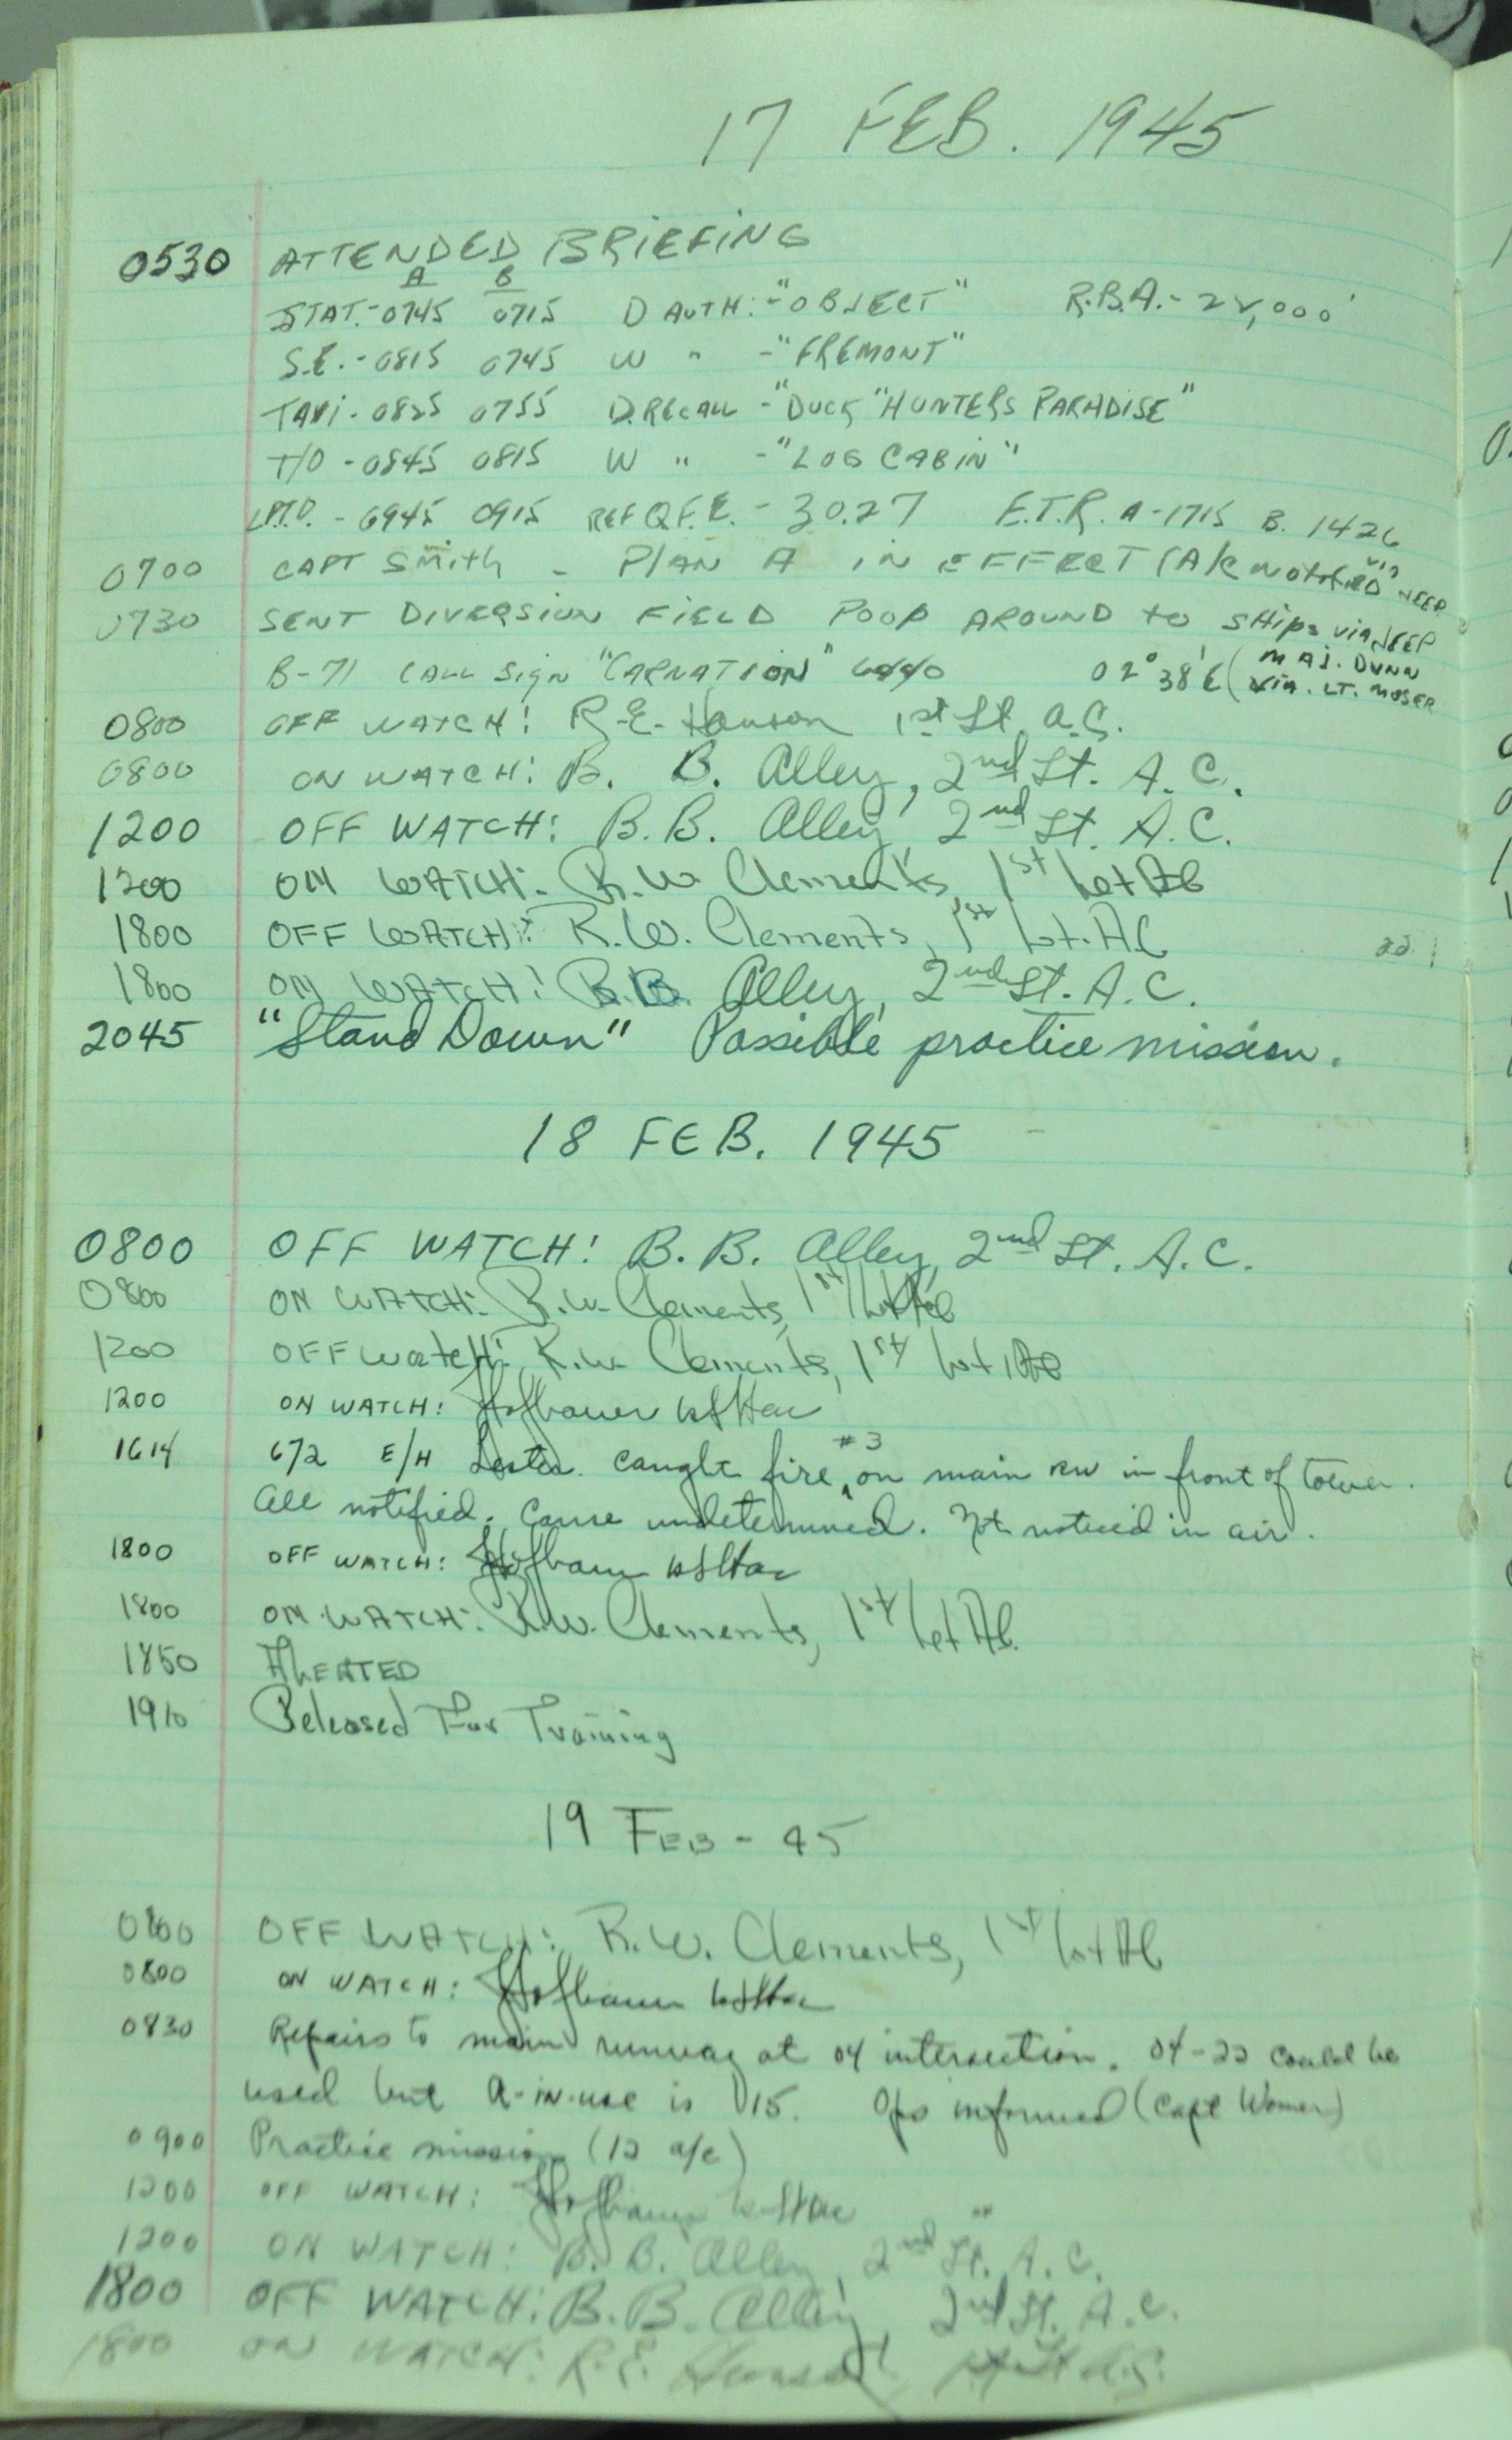 17 FEB. 1945
0530 ATTENDED BRIEFING
A B
STAT.-0745 0715 D AUTH: -"OBJECT" R.B.A.- 22,000'
S.E.-0815 0745 W " -"FREMONT"
TAXI-0825 0755 D.RECALL -"DUCK "HUNTERS PARADISE"
T/O -0845 0815 W " -"LOG CABIN"
L.T.O. -0945 0915 REF Q.F.E. - 30.27 E.T.R. A-1715 B. 1426
0700 CAPT Smith - PlAN A IN EFFECT (A/C NOtified via JEEP
0730 SENT DIVERSION FIELD POOP AROUND to SHips via JEEP
B-71 CALL Sign "CARNATION" 02° 38' E (MAJ. DUNN
via. LT. MOSER
0800 OFF WATCH: R.E. Hanson 1st Lt. A.C.
0800 ON WATCH: B. B. Alley, 2nd Lt. A.C.
1200 OFF WATCH: B.B. Alley, 2nd Lt. A.C.
1200 ON WATCH: R.W. Clements, 1st Lt AC
1800 OFF WATCH: R.W. Clements, 1st Lt. AC
1800 ON WATCH: B.B. Alley, 2nd Lt. A.C.
2045 "Stand Down" Possible practice mission.
18 FEB. 1945
0800 OFF WATCH: B.B. Alley, 2nd Lt. A.C.
0800 ON WATCH: R.W. Clements, 1st Lt AC
1200 OFF WatcH: R.W. Clements, 1st Lt AC
1200 ON WATCH: Hofbauer 1st Lt ac
1614 672 E/H Lester. caught fire #3 on main RW in front of tower.
All notified. Cause undetermined. Not noticed in air.
1800 OFF WATCH: Hofbauer 1st Lt ac
1800 ON WATCH: R.W. Clements, 1st Lt AC.
1850 ALERTED
1910 Released For Training
19 FEB - 45
0800 OFF WATCH: R.W. Clements, 1st Lt AC
0800 ON WATCH: Hofbauer 1st Lt ac
0830 Repairs to main runway at 04 intersection. 04-22 could be
used but A-in-use is 15. Ops informed (Capt
0900 Practice mission (12 a/c)
1200 OFF WATCH: Hofbauer 1st Lt ac
1200 ON WATCH: B.B. Alley, 2nd Lt. A.C.
1800 OFF WATCH: B.B. Alley, 2nd Lt. A.C.
1800 ON WATCH: R.E. Hanson 1st Lt A.C.